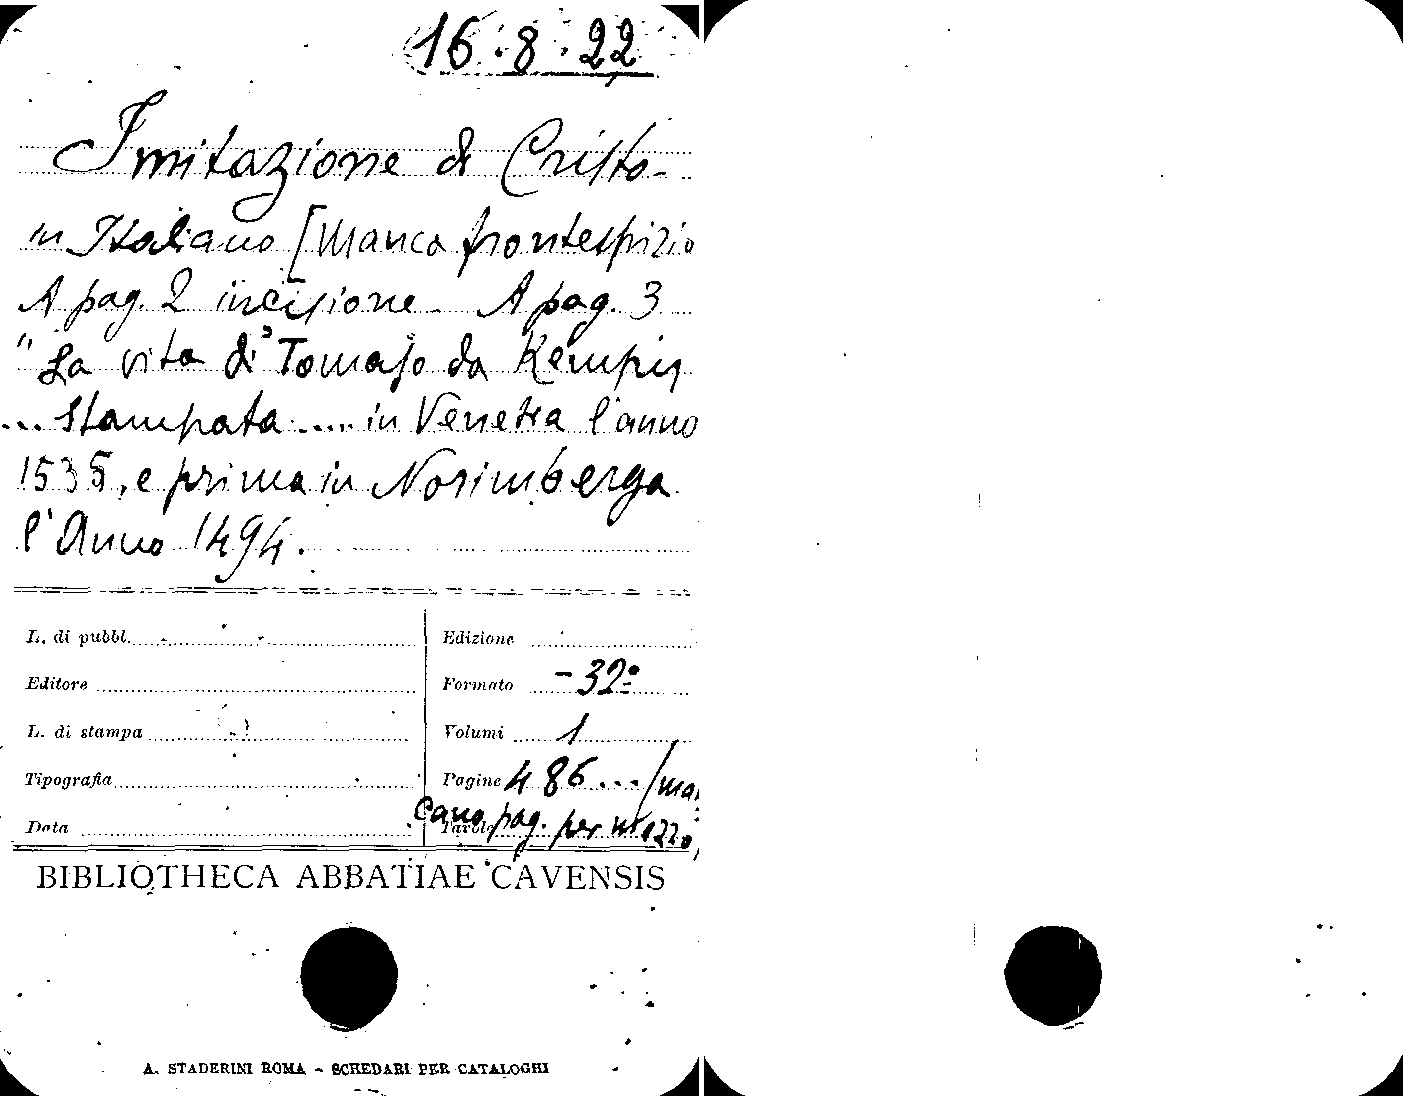 16.8.22
Imitazione di Cristo -
in Italiano [Manca frontespizio
A pag. 2 incisione - A pag. 3
"La vita di Tomaso da Kempis
... stampata .... in Venetia l'anno
1535, e prima in Norimberga
l'Anno 1494.
L. di pubbl.
Editore
L. di stampa
Tipografia
Data
Edizione
Formato - 32º
Volumi 1
Pagine 486... (man
cano pag. per mezzo)
Tavole
BIBLIOTHECA ABBATIAE CAVENSIS
A. STADERINI ROMA - SCHEDARI PER CATALOGHI